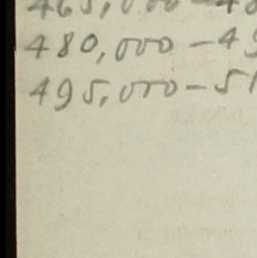 465,000-48
480,000-49
495,000-51